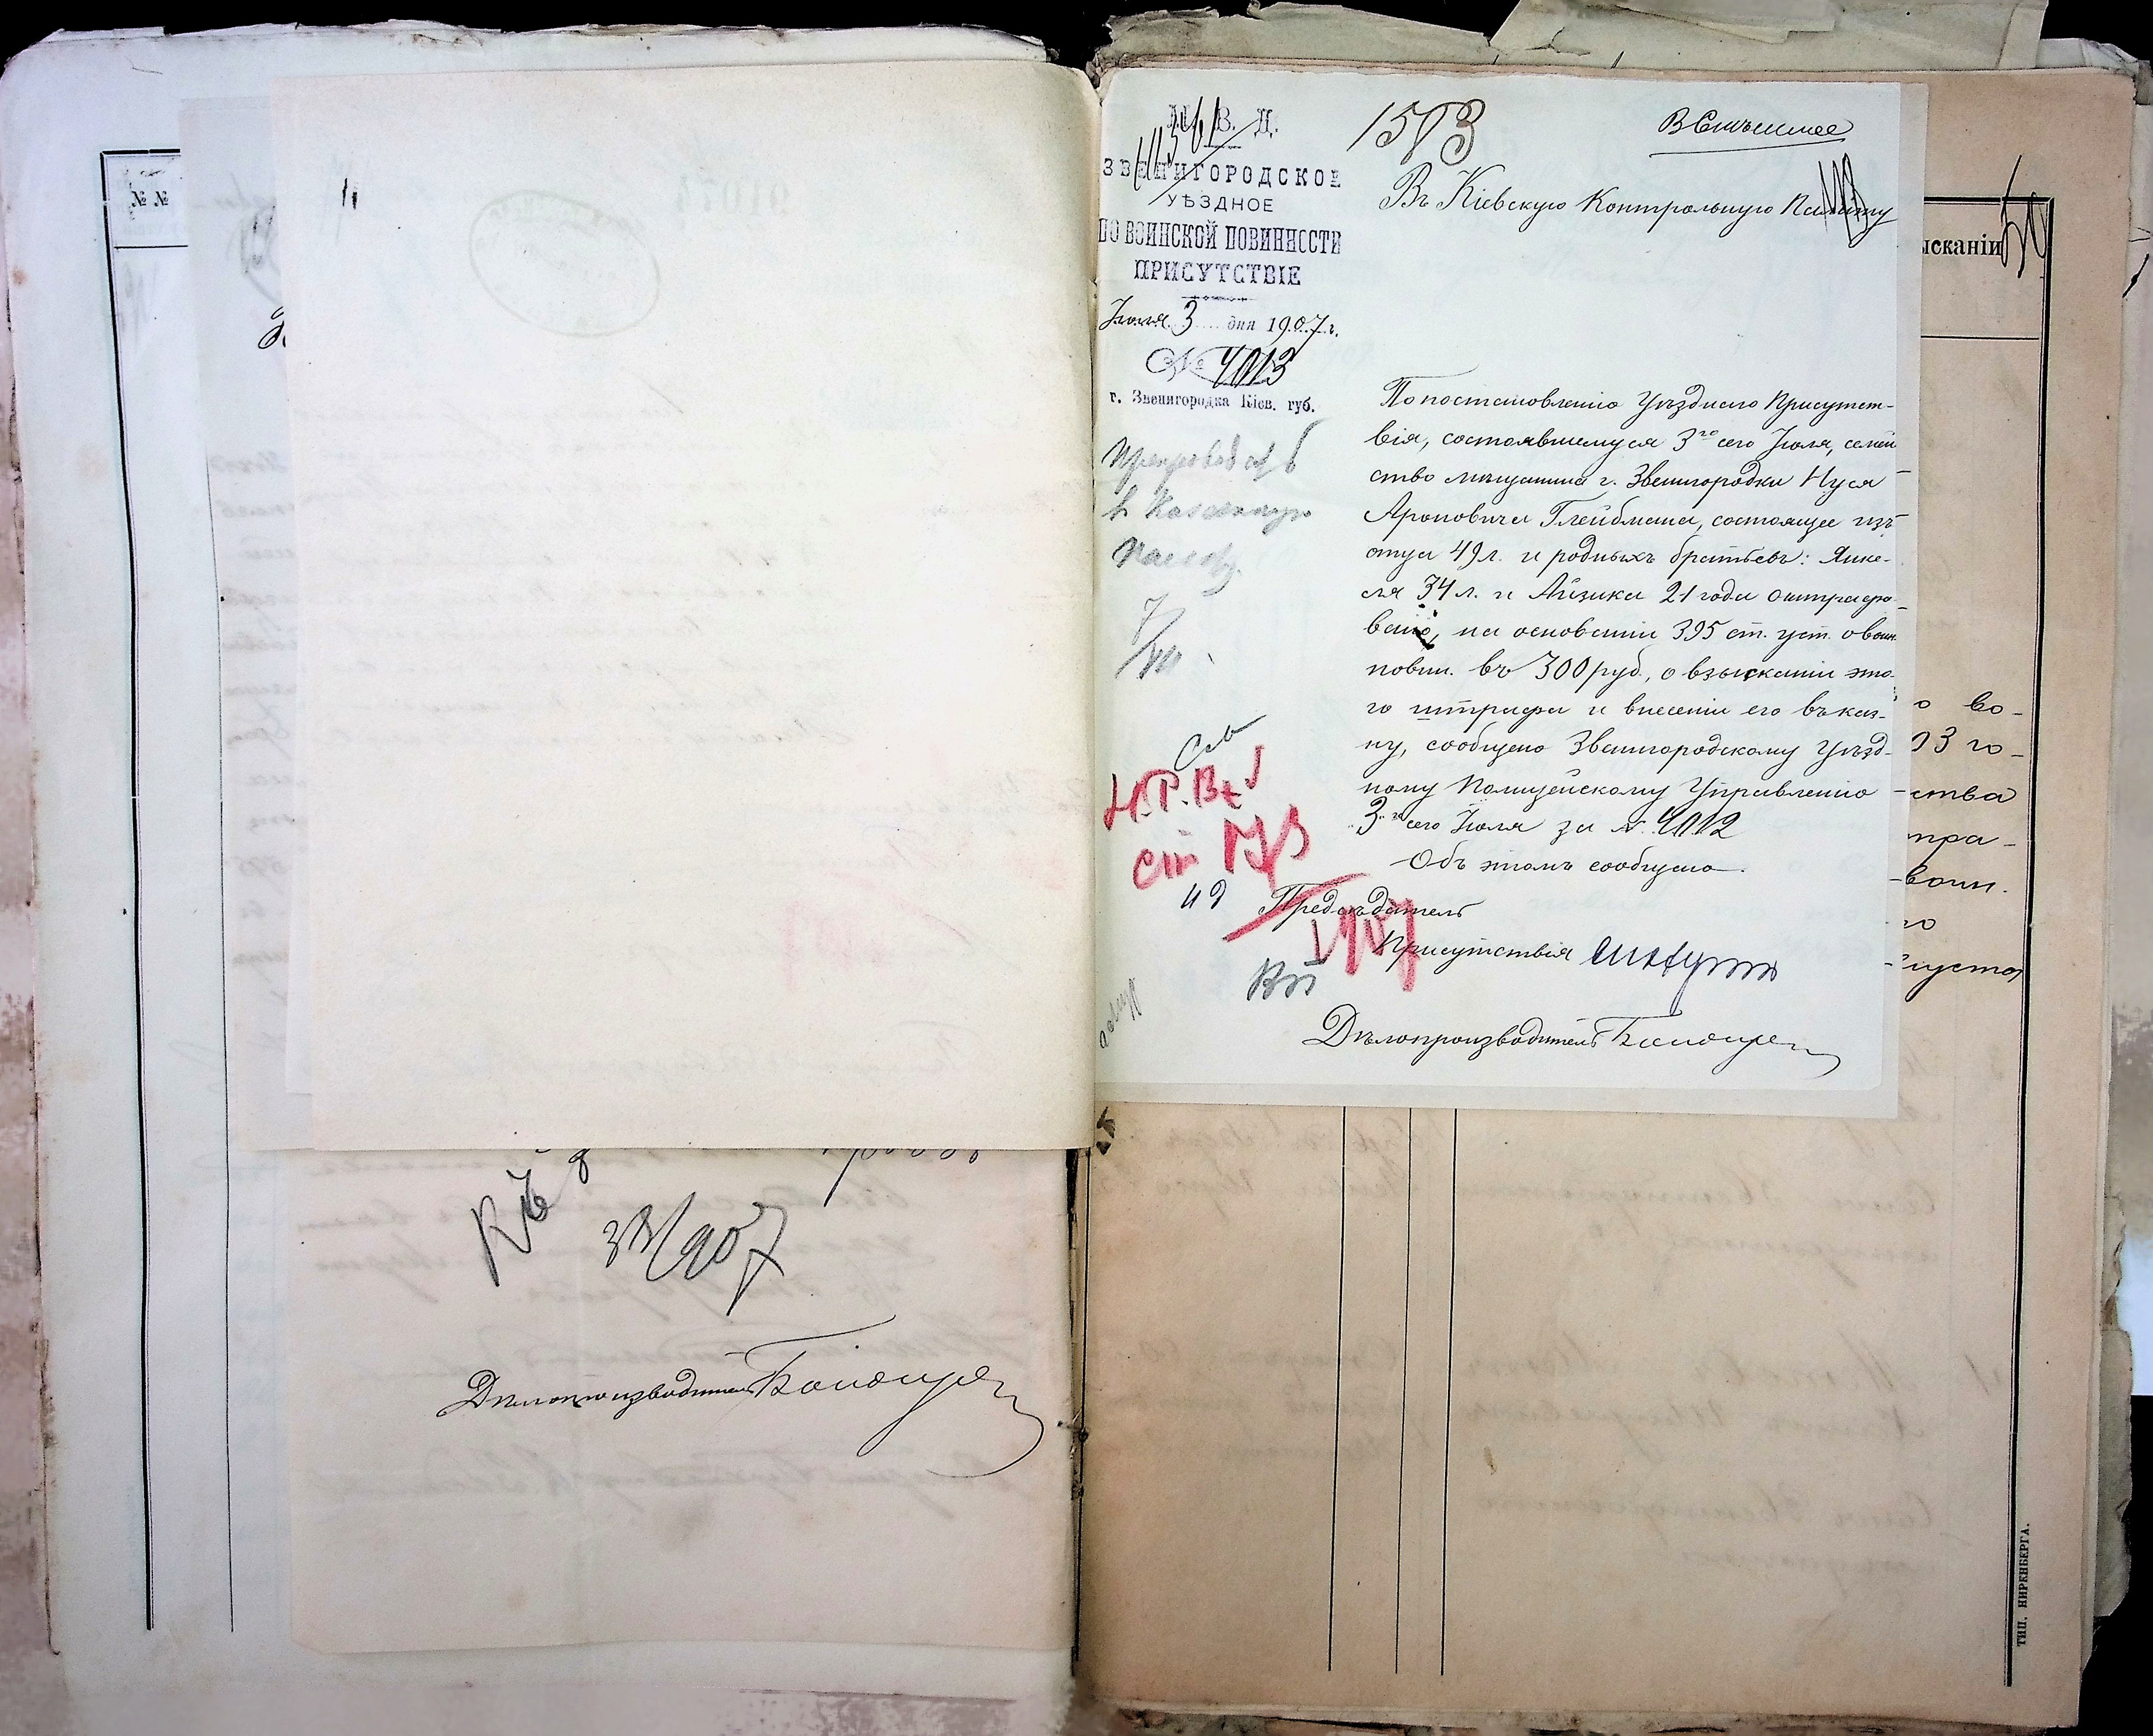 № №
Къ
33/907
Дѣлопроизводитель
М. В. Д.
ЗВЕНИГОРОДСКОЕ
УѢЗДНОЕ
ПО ВОИНСКОЙ ПОВИННОСТИ
ПРИСУТСТВІЕ
Іюля 3 дня 1907 г.
№ 4013
г. Звенигородка Кіев. губ.
1503
Въ Кіевскую Контрольную Палату
По постановленію Уѣзднаго Присутст-
вія, состоявшемуся 3го сего Іюля, семей
ство мѣщанина г. Звенигородки Нуся
Ароновича Глейбмана, состоящее изъ
отца 49 л. и родныхъ братьевъ: Янке-
ля 34 л. и Айзика 21 года оштрафо-
вано, на основаніи 395 ст. уст. о воин.
повин. въ 300 руб., о взысканіи это-
го штрафа и внесеніи его въ каз-
ну, сообщено Звенигородскому Уѣзд-
ному Полицейскому Управленію
3го сего Іюля за № 4012
Объ этомъ сообщено.
Предсѣдатель
Присутствія
Дѣлопроизводитель
Препровод
въ Казенную
Палату
7/VII
ст
49
1907
ысканіи
50
о во-
03 го-
ства
тра-
воин.
го
густа
ТИП. НИРЕНБЕРГА.